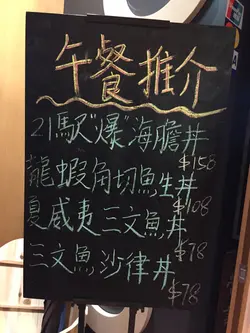 午餐推介
21駅"爆"海膽丼
$158
龍蝦角切魚生丼
$108
夏威夷三文魚丼
$78
三文魚沙律丼
$78